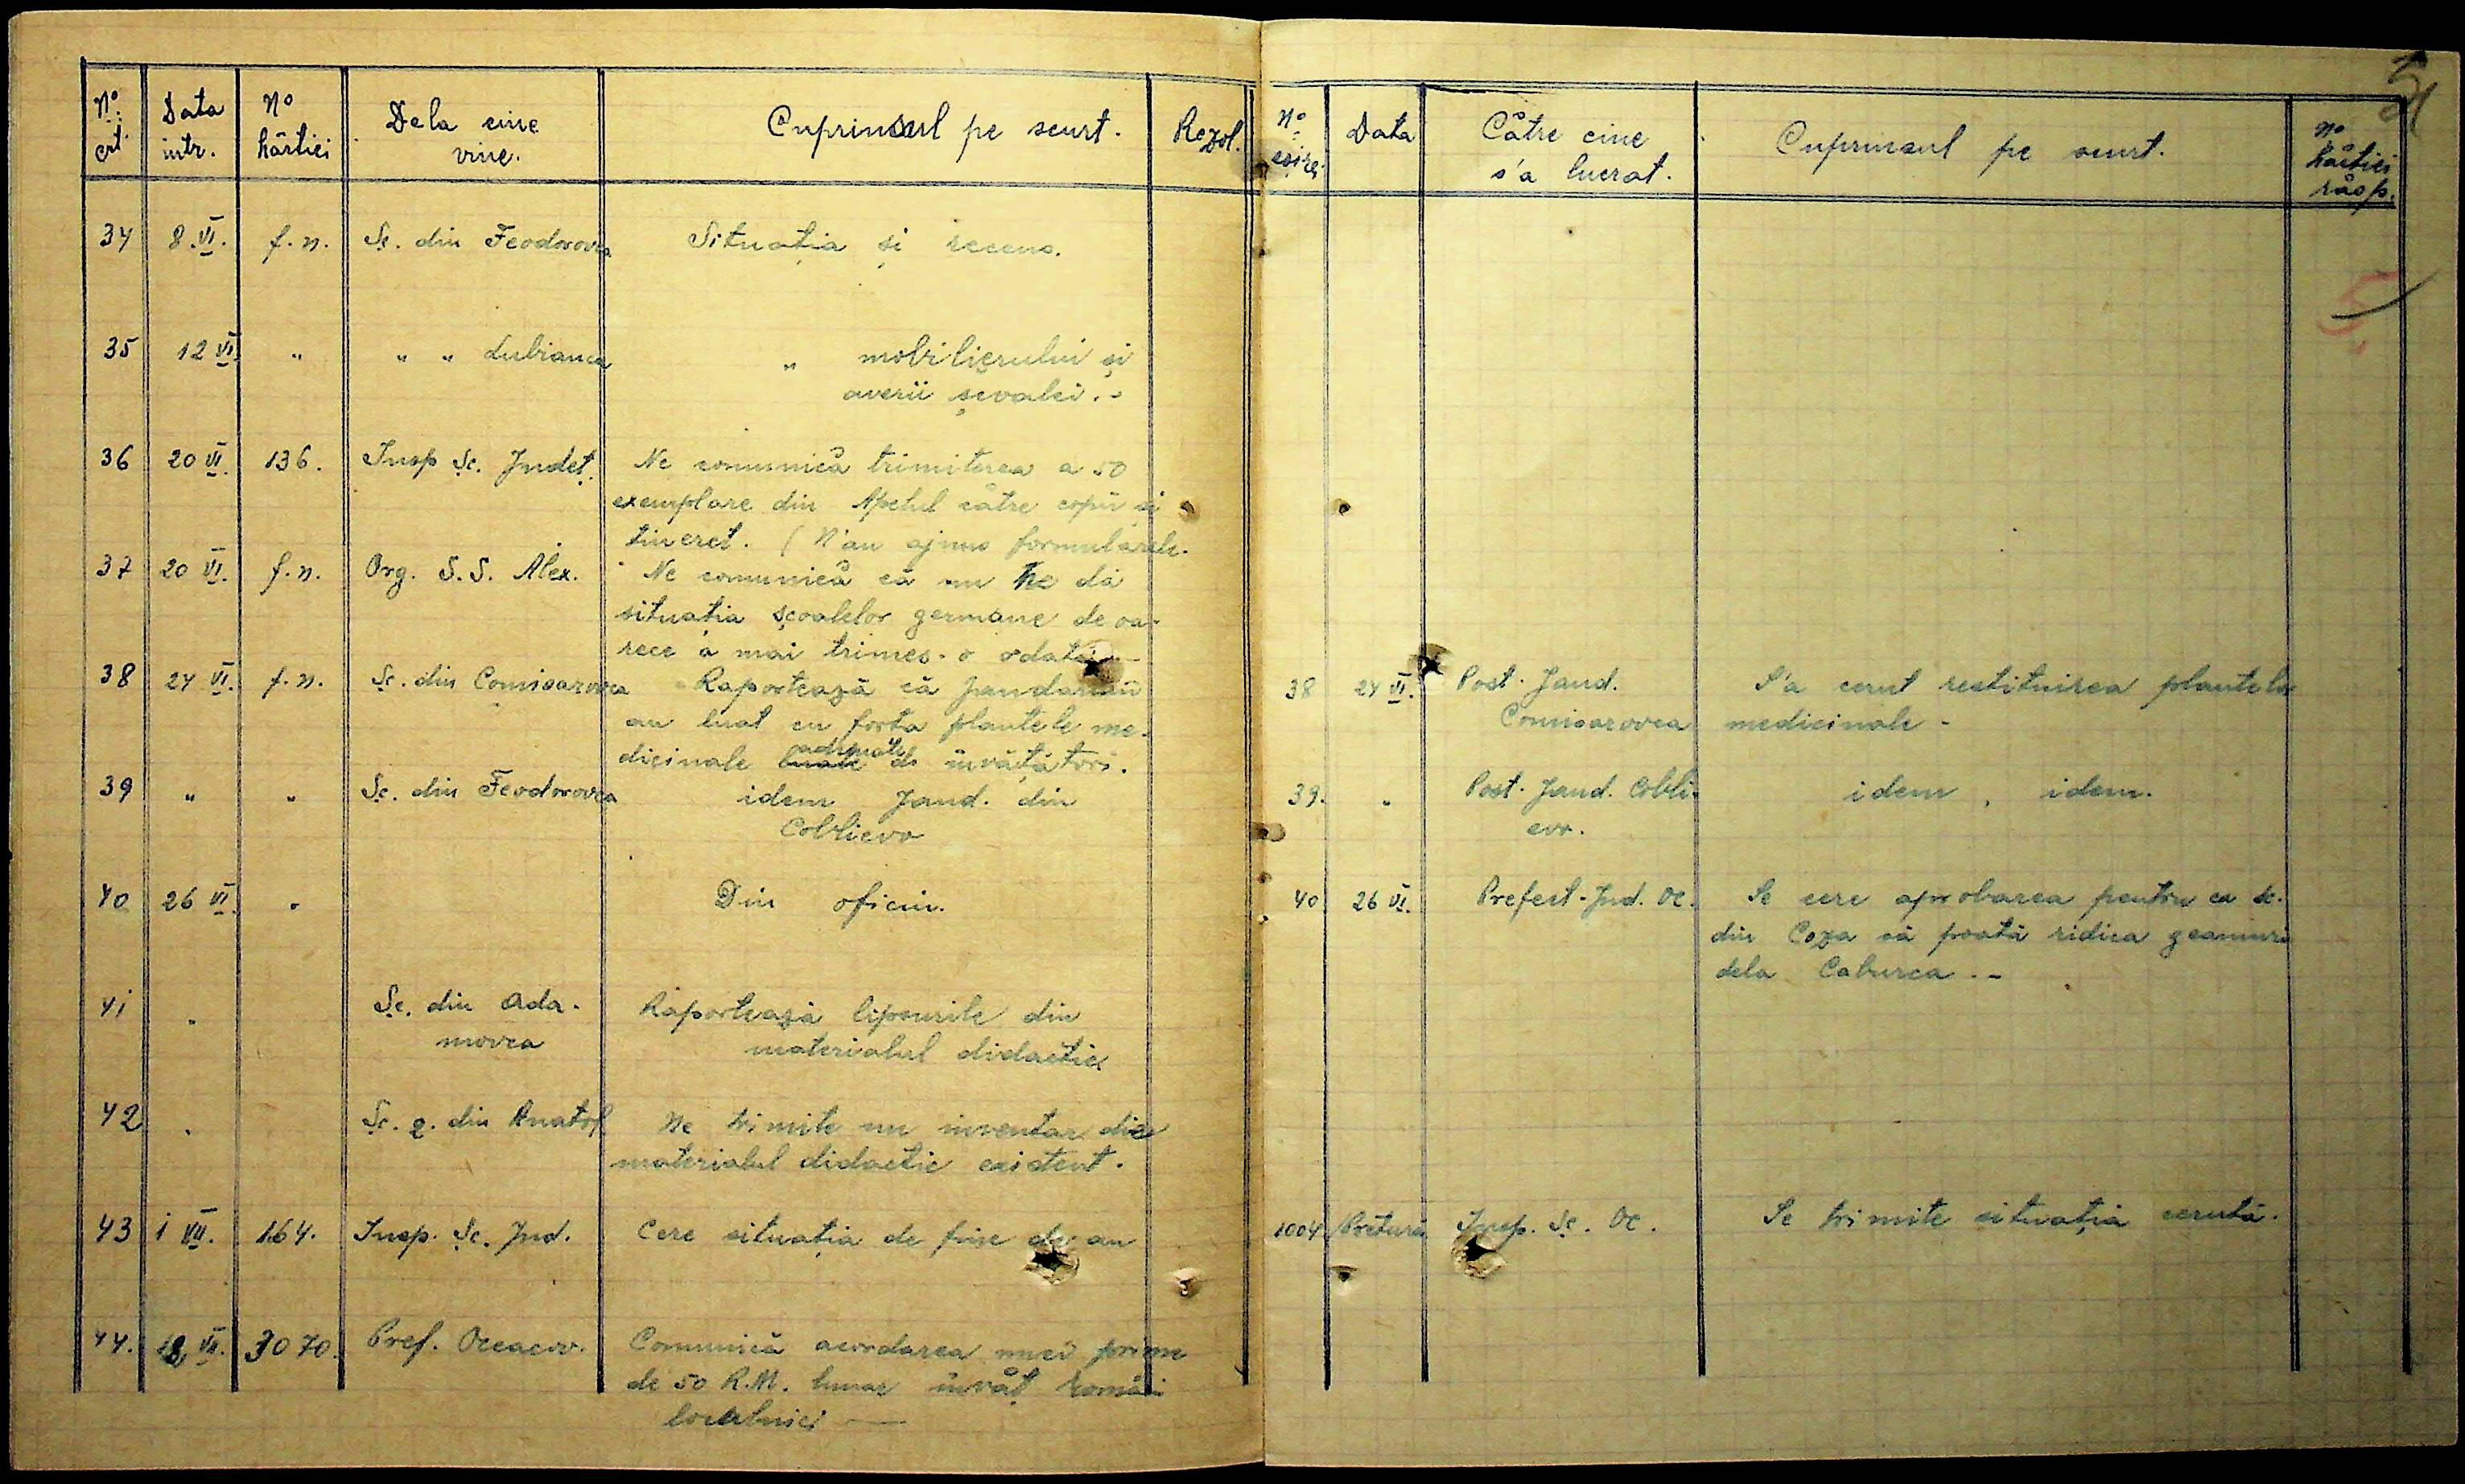 No. crt. | Data intr. | No hârtiei | Dela cine vine. | Cuprinsul pe scurt. | Rezol.
34 | 8.VI. | f.n. | Șc. din Feodorovca | Situația și recens.
35 | 12 VI. | " | " " Lubianca | " mobilierului și
averii școalei.-
36 | 20 VI. | 136. | Insp Șc. Județ. | Ne comunică trimiterea a 50
exemplare din Apelul către copii și
tineret. (N'au ajuns formularele.
37 | 20 VI. | f.n. | Org. S.S. Alex. | Ne comunică că nu ne dă
situația școalelor germane de oa-
rece a mai trimes-o odată.-
38 | 24 VI. | f.n. | Șc. din Comisarovca | Raportează că jandarmii
au luat cu forta plantele me-
dicinale luate adunate de învățători.
39 | " | " | Șc. din Feodorovca | idem Jand. din
Coblievo
40 | 26 VI. | " | Din oficiu.
41 | " | Șc. din Ada-
movca | Raportează lipsurile din
materialul didactic
42 | " | Șc. g. din Anatol | Ne trimite un inventar din
materialul didactic existent.
43 | 1 VII. | 164. | Insp. Șc. Jud. | Cere situația de fine de an
44. | 18 VII. | 3070. | Pref. Oceacov. | Comunică acordarea unei prime
de 50 R.M. lunar învăț români
localnici —
No. eșire. | Data | Către cine s'a lucrat. | Cuprinsul pe scurt. | No hârtiei răsp.
38 | 24 VI. | Post. Jand.
Comisarovca | S'a cerut restituirea plantelor
medicinale -
39. | " | Post. Jand. Cobli-
evo. | idem, idem.
40 | 26 VI. | Prefect. Jud. Oc. | Se cere aprobarea pentru ca șc.
din Coza să poată ridica geamuri
dela Caburca.-
1004 /Pretură | Insp. Șc. Oc. | Se trimite situația cerută.